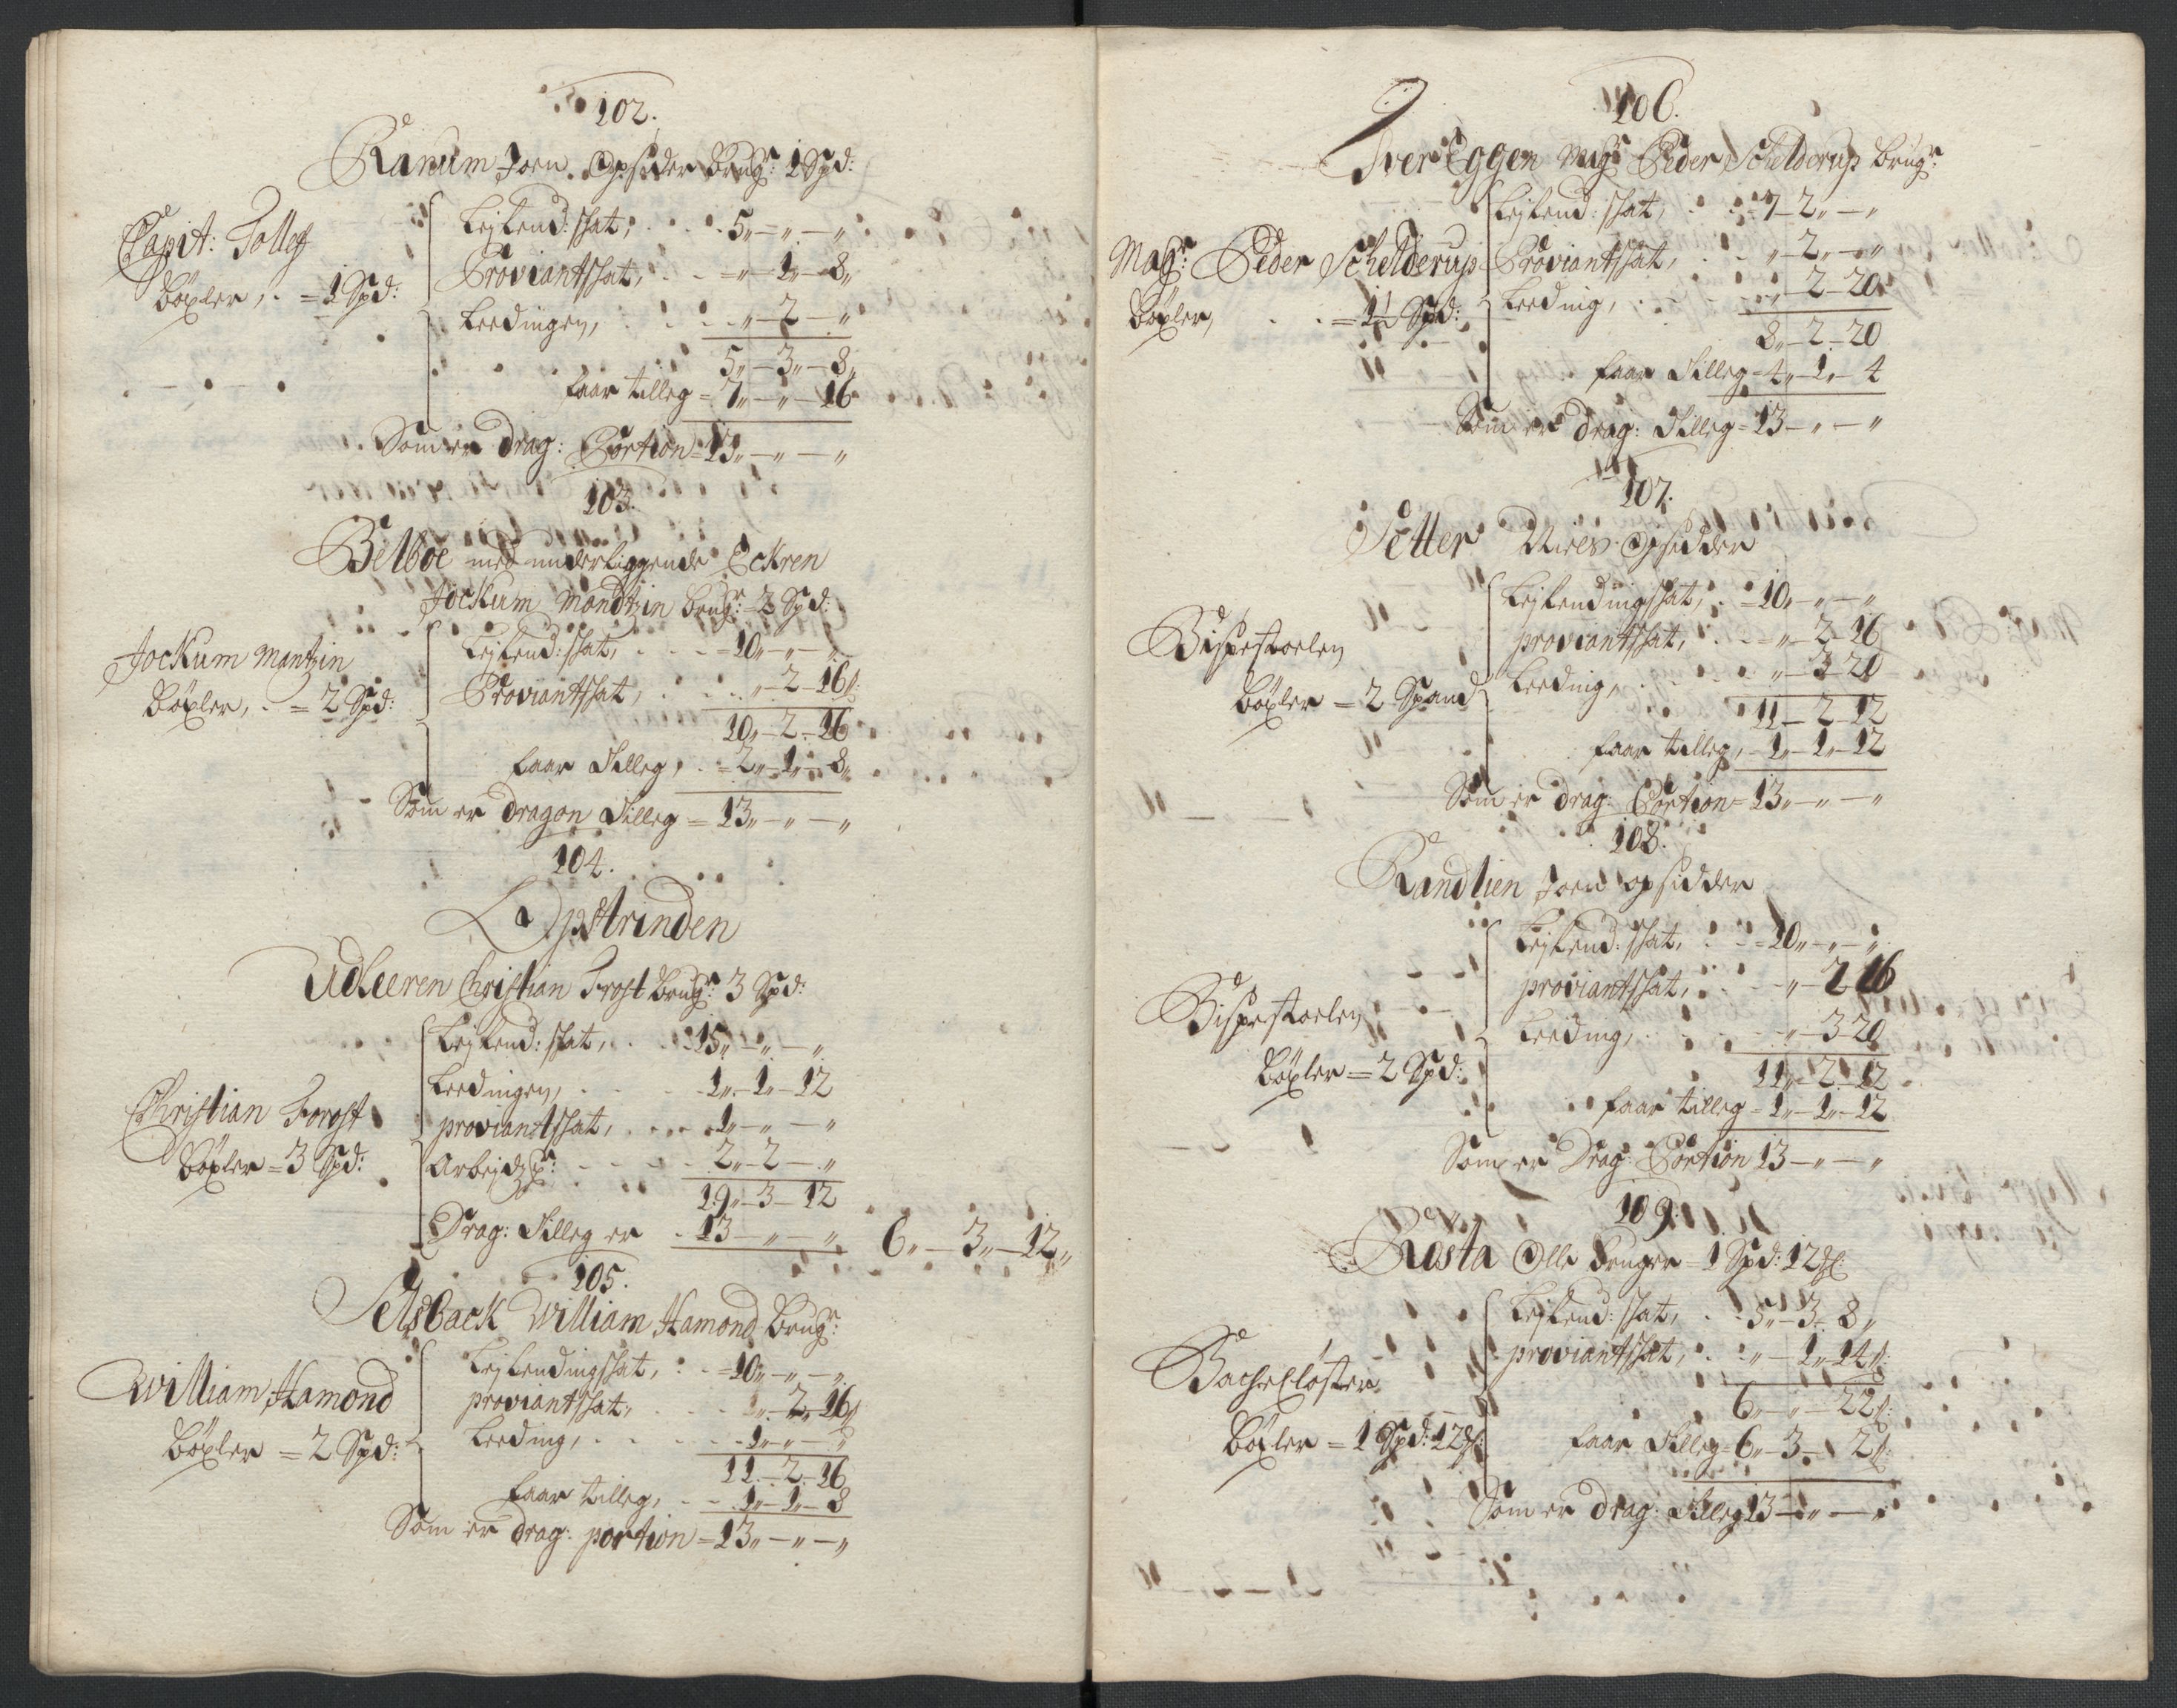 102.
Ranum Joen Opsider brugr: 1 Spd:
Capit: Tolley
böxler, = 1 Spd:
Lejlend: skat, 5„ — „ — „
Proviantskat, „ — 1„ — 8„
Leedingen, „ — 2 — „
5„ — 3„ — 8„
faar tilleg = 7„ — „ — 16
Som er drag: Portion = 13„ — „ — „
103.
Belboe med underliggende Eckren
Jockum Mandtzin brugr: = 2 Spd:
Jockum Mantzin
böxler, = 2 Spd:
Lejlend: skat, = 10„ — „ — „
Proviantskat, „ — 2 — 16ß:
10„ — 2 — 16
faar Tilleg, = 2„ — 1„ — 8„
Som er dragon Tilleg = 13„ — „ — „
104.
Opstrinden
Udleeren Christian Frost brugr: 3 Spd:
Christian Forost
böxler = 3 Spd:
Lejlend: skat, 15„ — „ — „
Leedingen, 1„ — 1„ — 12
proviantskat, 1 — „ — „
Arbejdzp: 2„ — 2 — „
19„ — 3 — 12
Drag: Tilleg er 13 — „ — „ 6„ — 3„ — 12„
105.
Selsback William Hamond brugr:
William Hamond
böxler = 2 Spd:
Lejlendingskat, = 10„ — „ — „
proviantskat, „ 2„ 16ß
Leeding, 1„ — „ — „
11 — 2 — 16
faar tilleg, 1„ — 1„ — 8
Som er drag: portion = 13„ — „ — „
106.
Iver Eggen Magr Peder Schelderup brugr:
Magr: Peder Schelderup
böxler, = 1½ Spd:
Lejlend: skat, 7 — 2„ — „
Proviantskat, „ — 2„ — „
Leeding, „ — 2 — 20
8„ — 2 — 20
faar Tilleg = 4„ — 1„ — 4
Som er drag: Tilleg = 13 — „ — „
107.
Setter Niels Opsidder
Bispestoelen
böxler = 2 Spand
Lejlendingskat, = 10„ — „ — „
proviantskat, „ — 2 — 16
Leeding, „ — 3 — 20
11 — 2 — 12
faar tilleg, 1„ — 1„ — 12
Som er drag: Portion = 13„ — „ — „
108.
Randlien Joen opsidder
Bispestoelen
böxler = 2 Spd:
Lejlend: skat, = 10„ — „ — „
proviantskat, „ — 2 16
Leeding, „ — 3 — 20
11„ — 2 — 12
faar tilleg = 1„ — 1„ — 12
Som er Drag: Portion 13 — „ — „
109.
Rosta Olle bruger = 1 Spd: 12 ℳ:
Bachecloster
böxler = 1 Spd: 12 ℳ:
Lejlend: skat, 5„ — 3 — 8„
proviantskat, „ — 1„ 14ß:
6„ — „ — 22ß:
faar Tilleg = 6„ — 3 — 2ß:
Som er drag: Tilleg 13 — „ — „